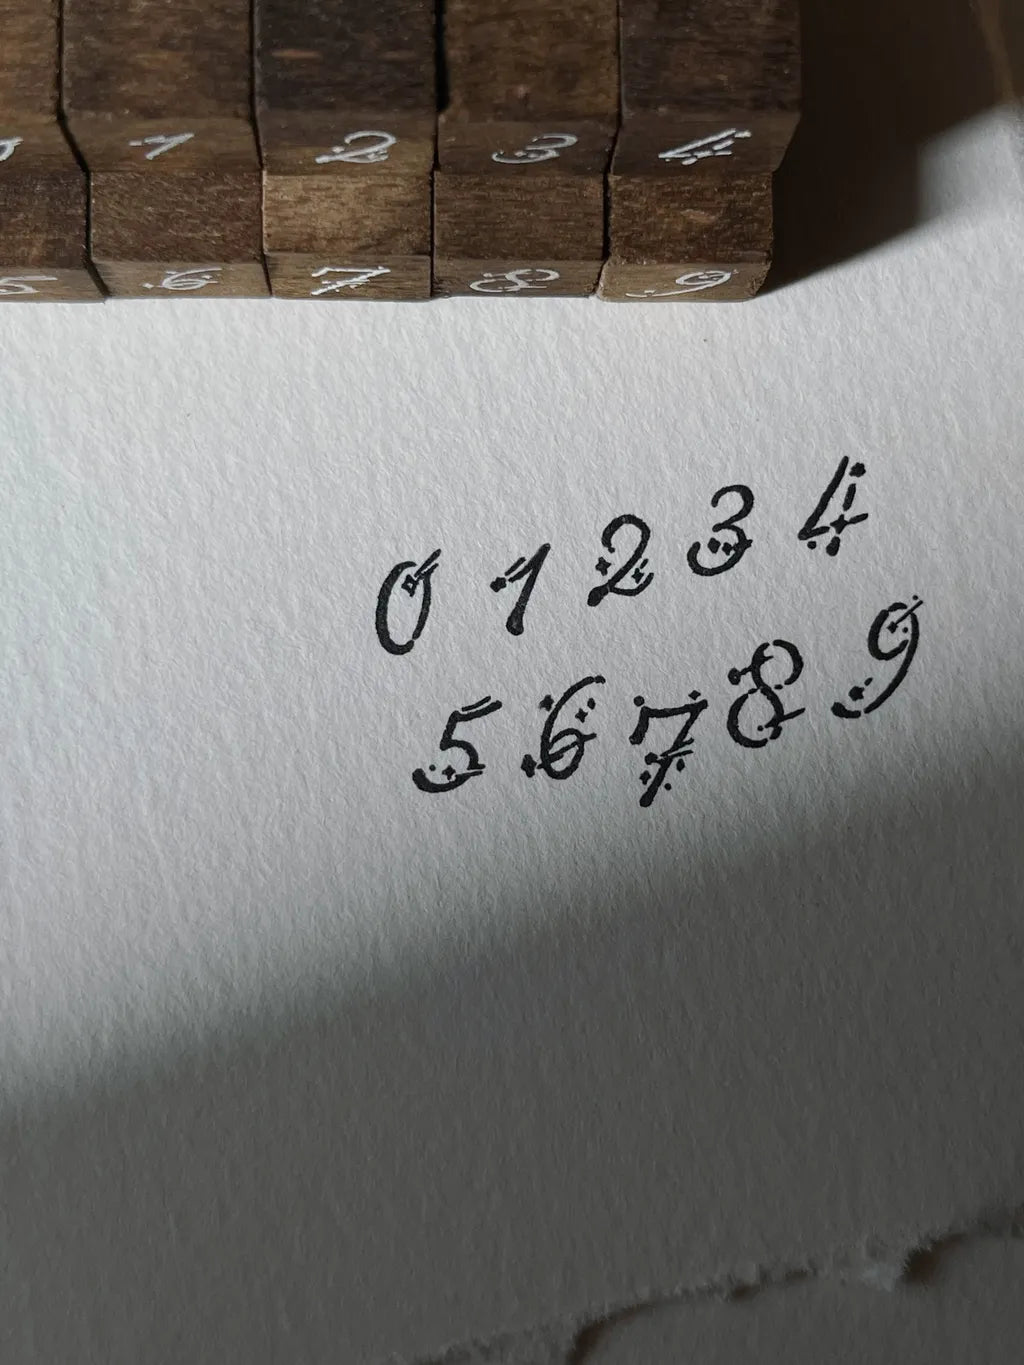 0 1 2 3 4
5 6 7 8 9
0 1 2 3 4
5 6 7 8 9